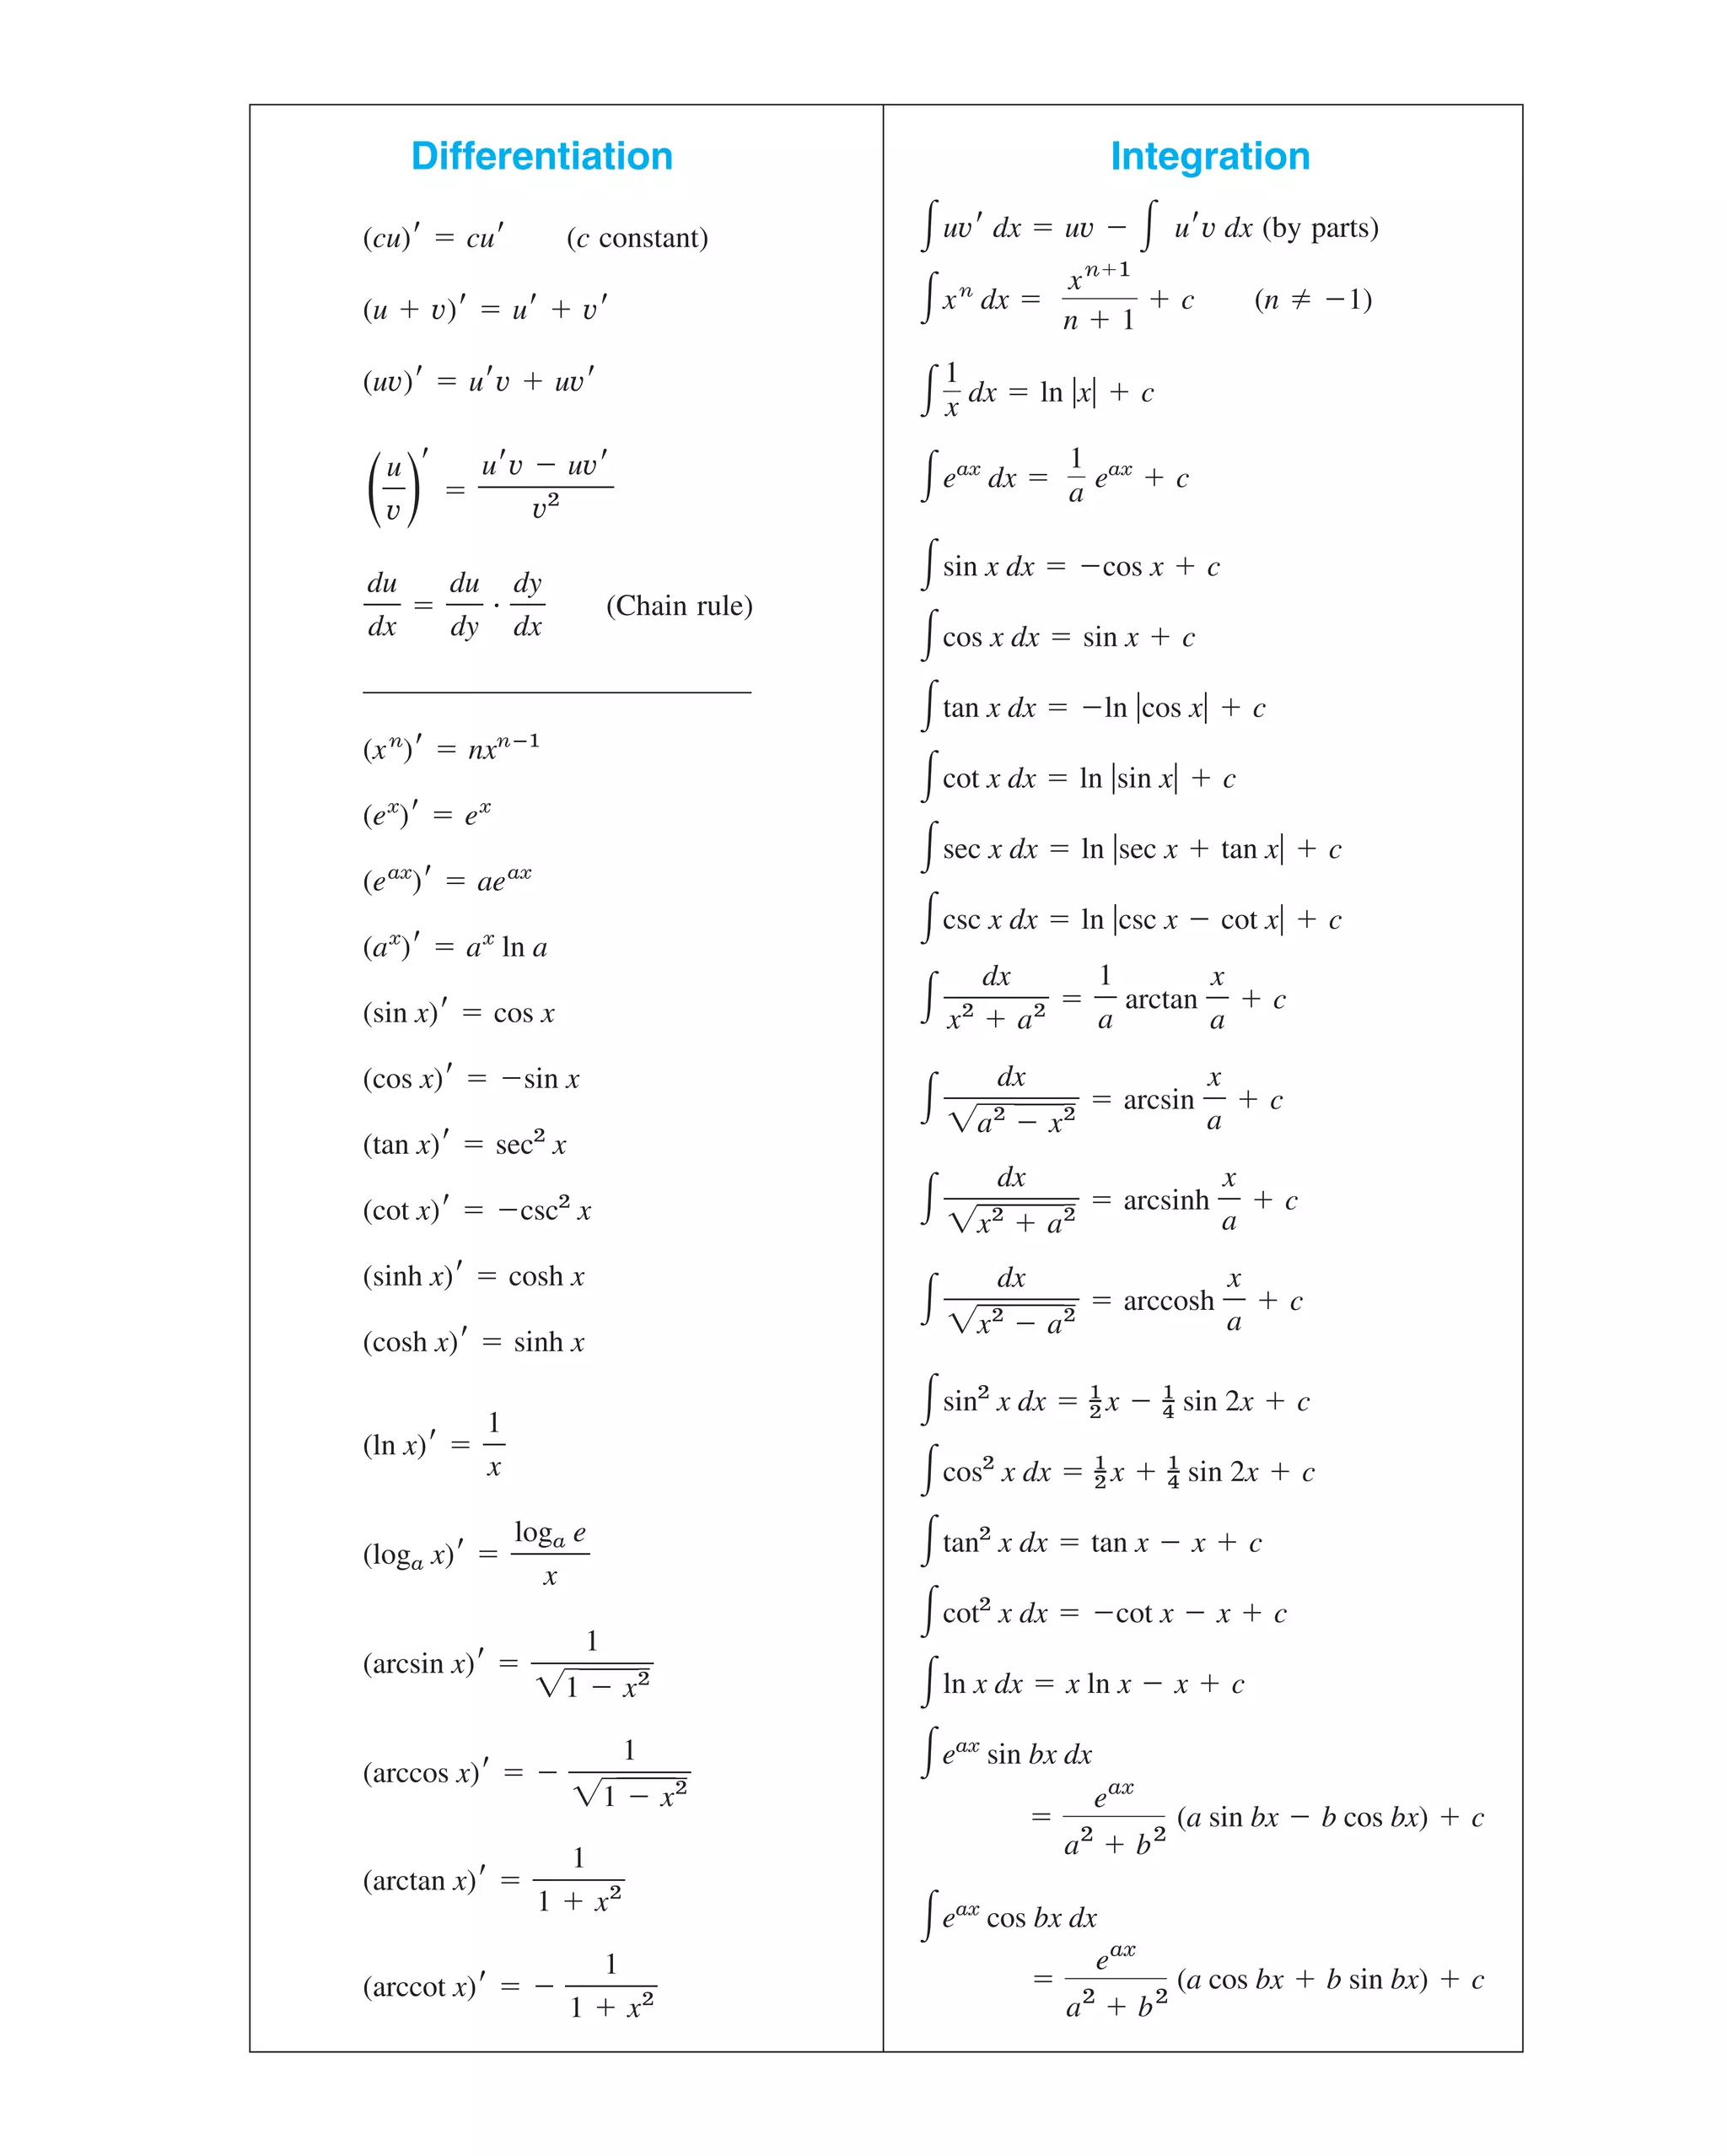 Differentiation
(cu)′ = cu′ (c constant)
(u + v)′ = u′ + v′
(uv)′ = u′v + uv′
(u/v)′ = (u′v − uv′)/v²
du/dx = du/dy · dy/dx (Chain rule)
(xⁿ)′ = nxⁿ⁻¹
(eˣ)′ = eˣ
(e^{ax})′ = ae^{ax}
(aˣ)′ = aˣ ln a
(sin x)′ = cos x
(cos x)′ = −sin x
(tan x)′ = sec² x
(cot x)′ = −csc² x
(sinh x)′ = cosh x
(cosh x)′ = sinh x
(ln x)′ = 1/x
(logₐ x)′ = logₐ e/x
(arcsin x)′ = 1/√(1 − x²)
(arccos x)′ = −1/√(1 − x²)
(arctan x)′ = 1/(1 + x²)
(arccot x)′ = −1/(1 + x²)
Integration
∫ uv′ dx = uv − ∫ u′v dx (by parts)
∫ xⁿ dx = xⁿ⁺¹/(n + 1) + c (n ≠ −1)
∫ 1/x dx = ln |x| + c
∫ e^{ax} dx = 1/a e^{ax} + c
∫ sin x dx = −cos x + c
∫ cos x dx = sin x + c
∫ tan x dx = −ln |cos x| + c
∫ cot x dx = ln |sin x| + c
∫ sec x dx = ln |sec x + tan x| + c
∫ csc x dx = ln |csc x − cot x| + c
∫ dx/(x² + a²) = 1/a arctan x/a + c
∫ dx/√(a² − x²) = arcsin x/a + c
∫ dx/√(x² + a²) = arcsinh x/a + c
∫ dx/√(x² − a²) = arccosh x/a + c
∫ sin² x dx = ½x − ¼ sin 2x + c
∫ cos² x dx = ½x + ¼ sin 2x + c
∫ tan² x dx = tan x − x + c
∫ cot² x dx = −cot x − x + c
∫ ln x dx = x ln x − x + c
∫ e^{ax} sin bx dx
= e^{ax}/(a² + b²) (a sin bx − b cos bx) + c
∫ e^{ax} cos bx dx
= e^{ax}/(a² + b²) (a cos bx + b sin bx) + c